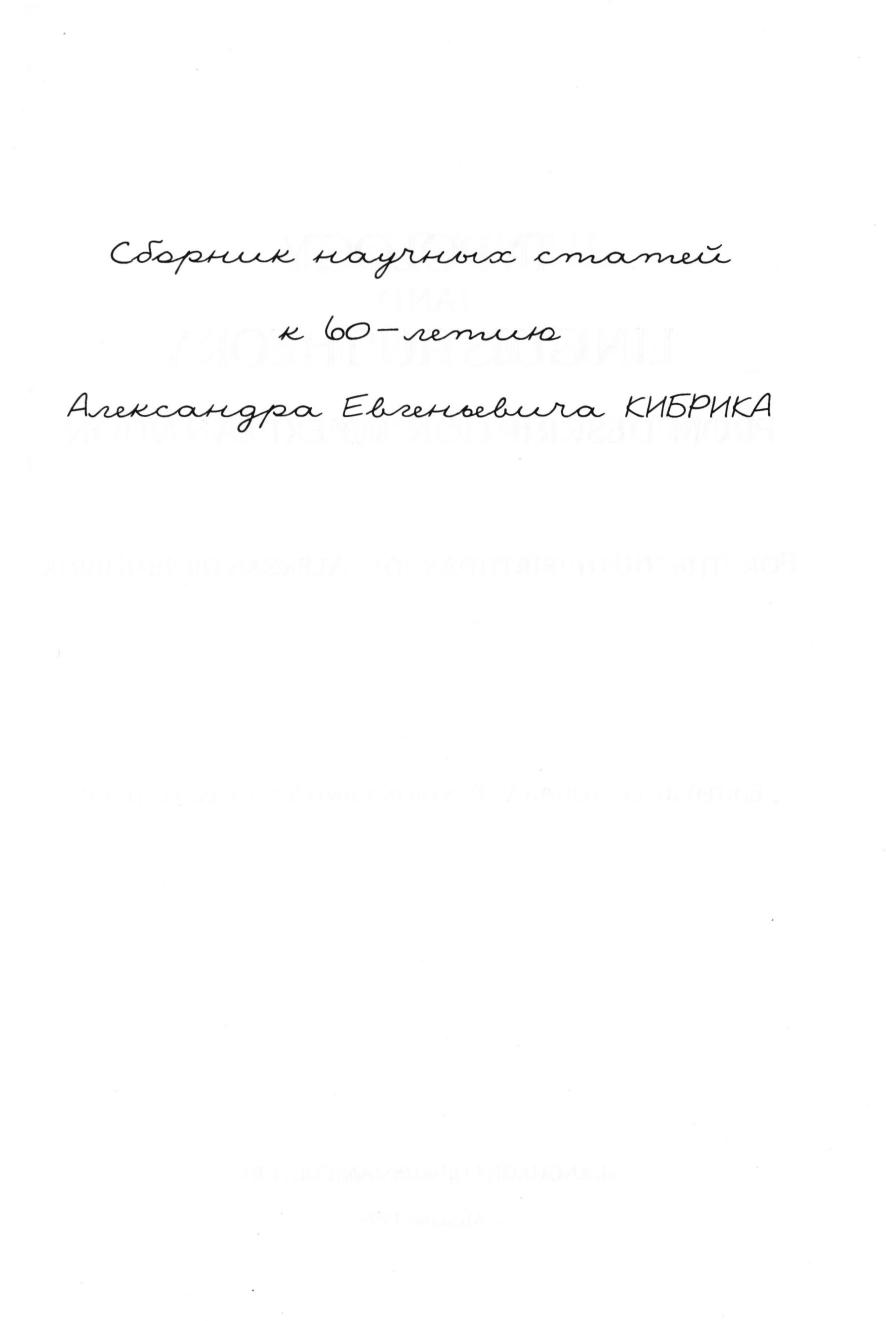 Сборник научных статей
к 60-летию
Александра Евгеньевича КИБРИКА